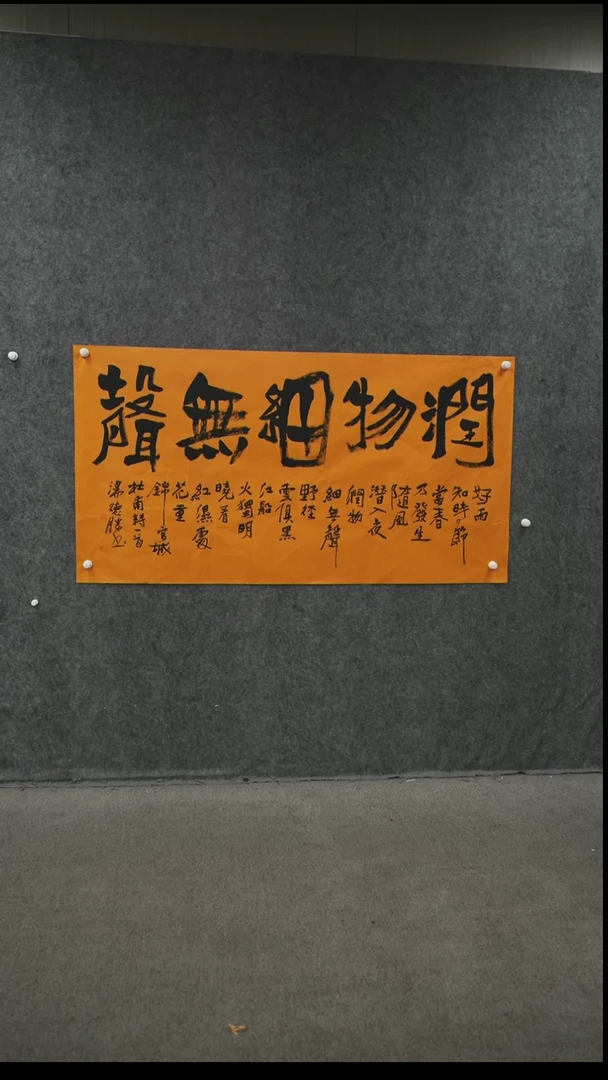 潤物細無聲
好雨
知時節
當春
乃發生
隨風
潛入夜
潤物
細無聲
野徑
雲俱黑
江船
火獨明
曉看
紅濕處
花重
錦官城
杜甫詩一首